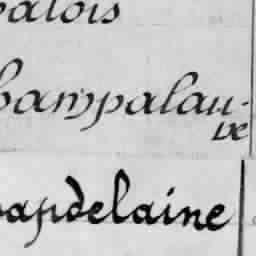 palois
hampalau-
ve
apdelaine